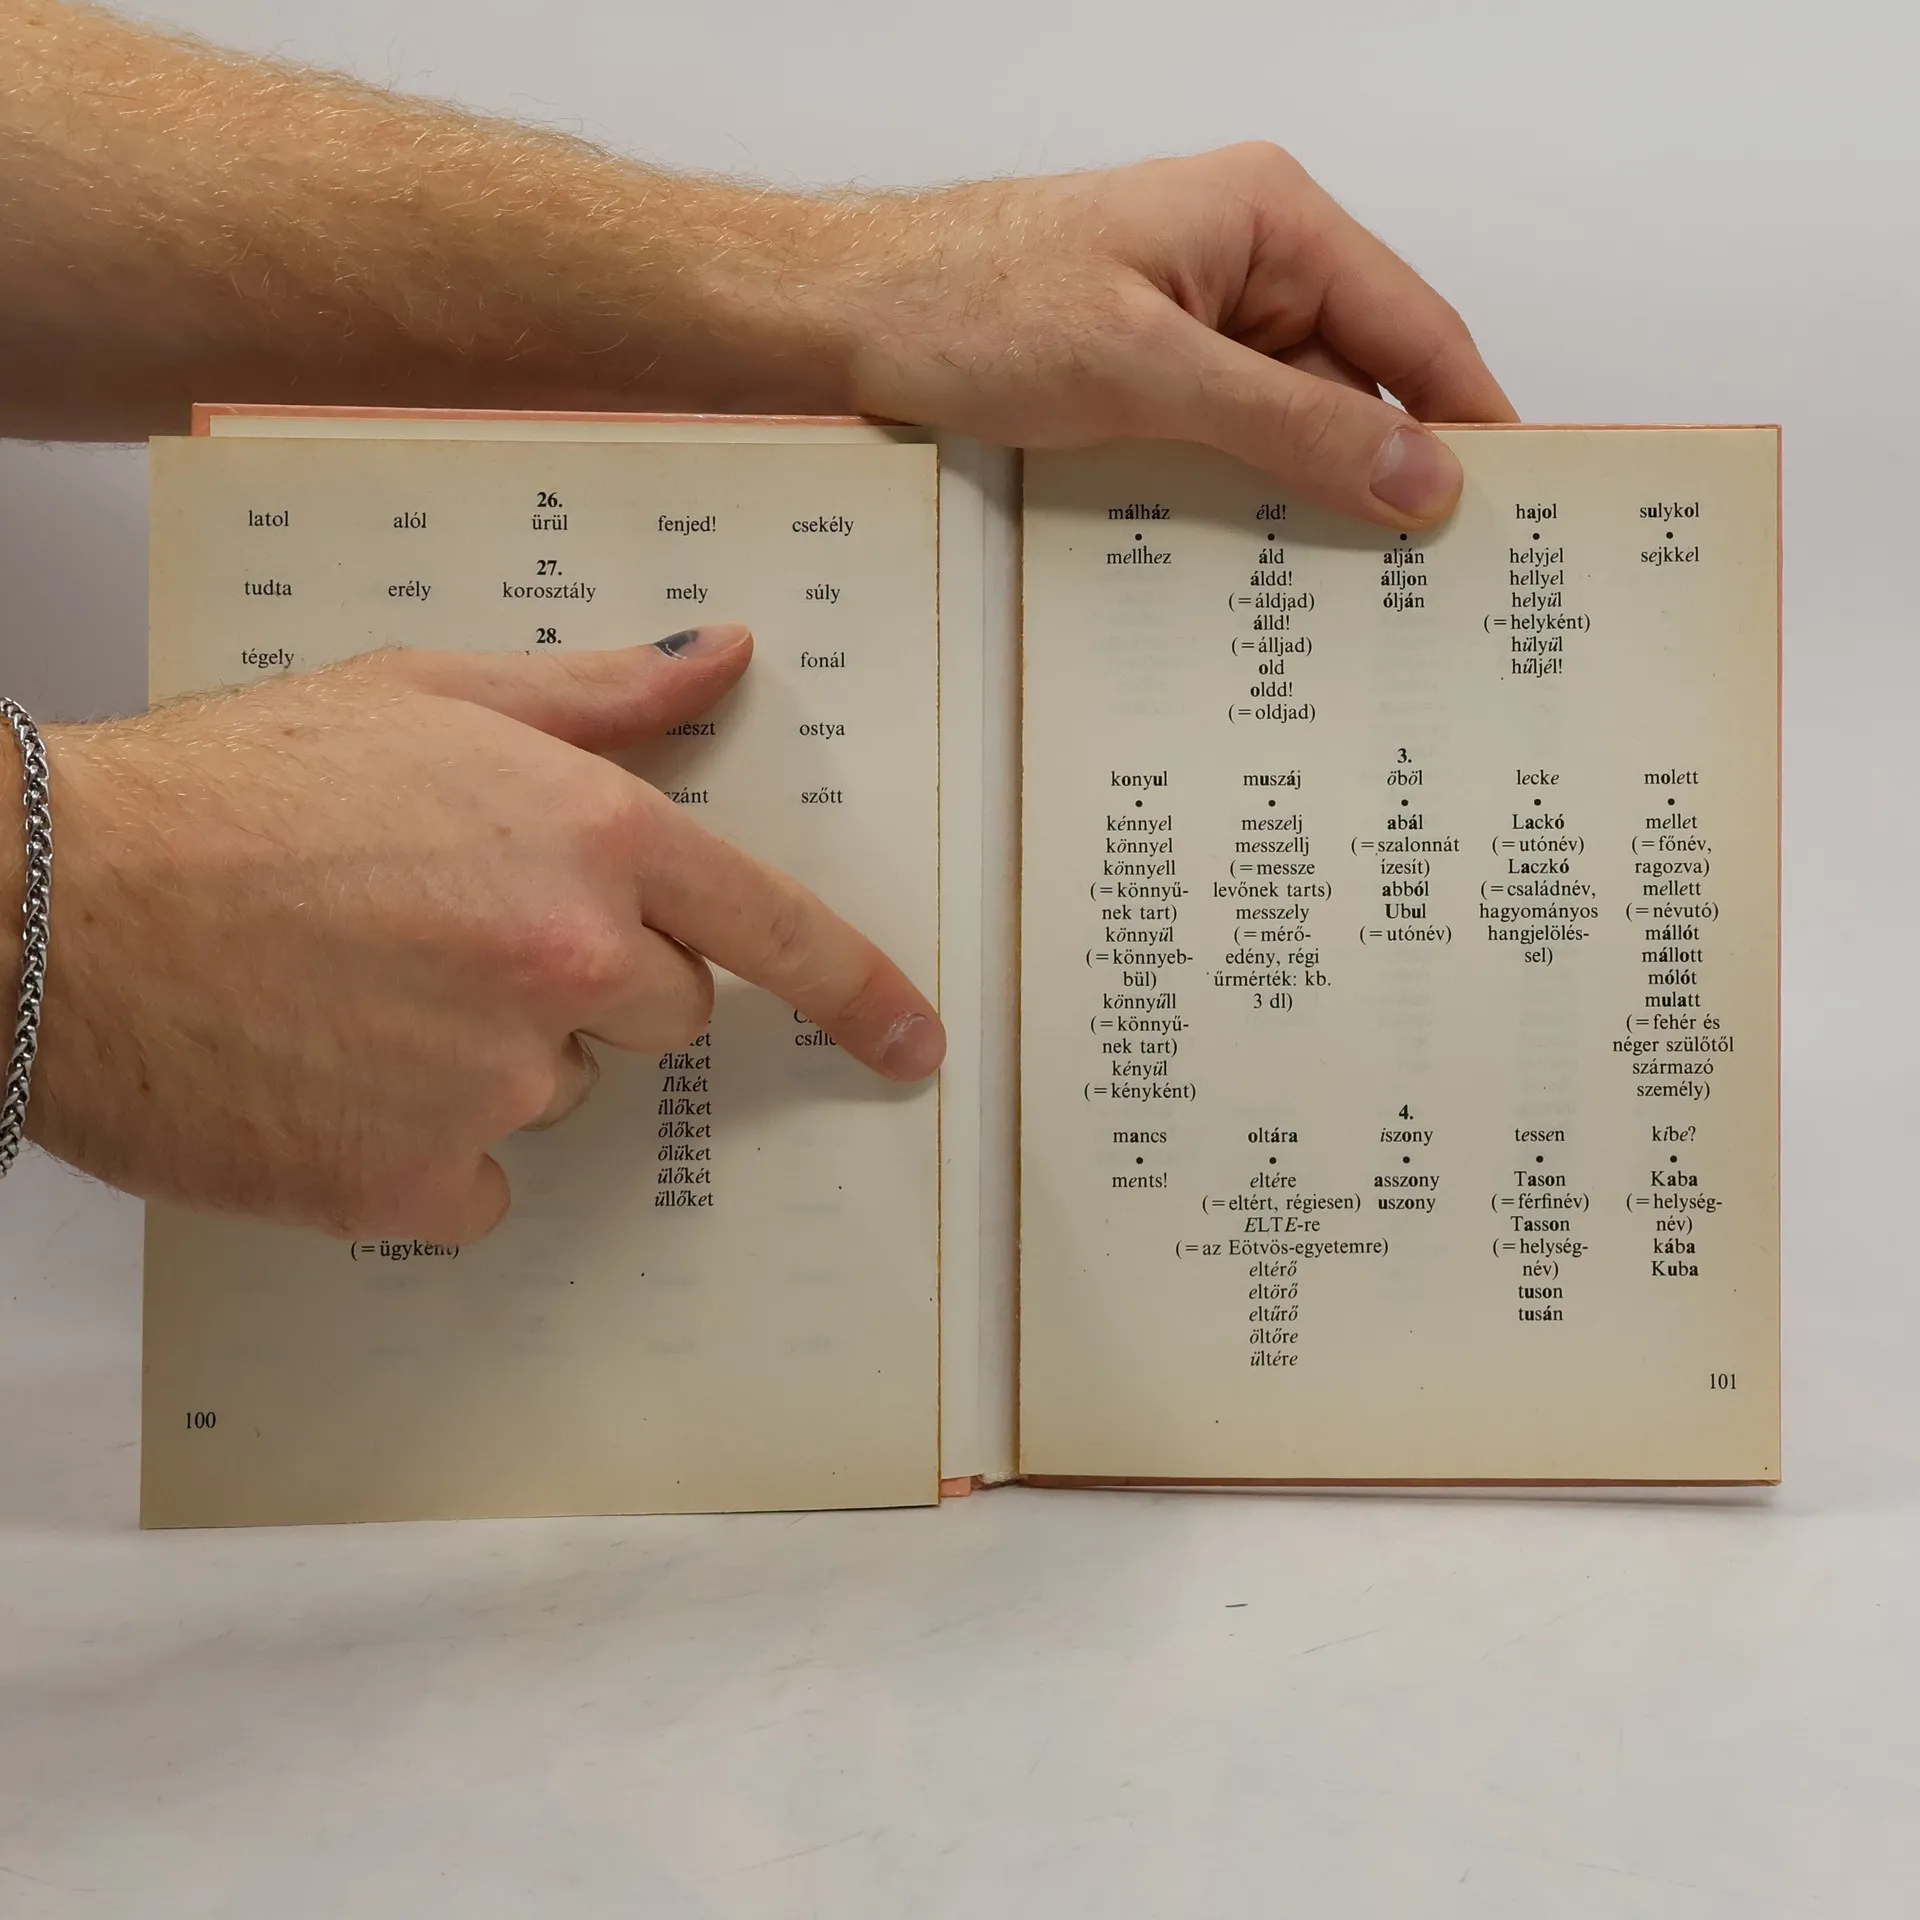 26.
latol alól ürül fenjed! csekély
27.
tudta erély korosztály mely súly
28.
tégely fonál
ostya
szőtt
élüket
Ilikét
illőket
ölőket
ölüket
ülőkét
üllőket
(=ügyként)
100
málház éld! hajol sulykol
• • • • •
mellhez áld alján helyjel sejkkel
áldd! álljon hellyel
(=áldjad) ólján helyül
álld! (=helyként)
(=álljad) hülyül
old hűljél!
oldd!
(=oldjad)
3.
konyul muszáj öböl lecke molett
• • • • •
kénnyel meszelj abál Lackó mellet
könnyel messzellj (=szalonnát (=utónév) (=főnév,
könnyell (=messze ízesít) Laczkó ragozva)
(=könnyű- levőnek tarts) abból (=családnév, mellett
nek tart) messzely Ubul hagyományos (=névutó)
könnyül (=mérő- (=utónév) hangjelölés- mállót
(=könnyeb- edény, régi sel) mállott
bül) űrmérték: kb. mólót
könnyűll 3 dl) mulatt
(=könnyű- (=fehér és
nek tart) néger szülőtől
kényül származó
(=kényként) személy)
4.
mancs oltára iszony tessen kibe?
• • • • •
ments! eltére asszony Tason Kaba
(=eltért, régiesen) uszony (=férfinév) (=helység-
ELTE-re Tasson név)
(=az Eötvös-egyetemre) (=helység- kába
eltérő név) Kuba
eltörő tuson
eltűrő tusán
öltőre
ültére
101